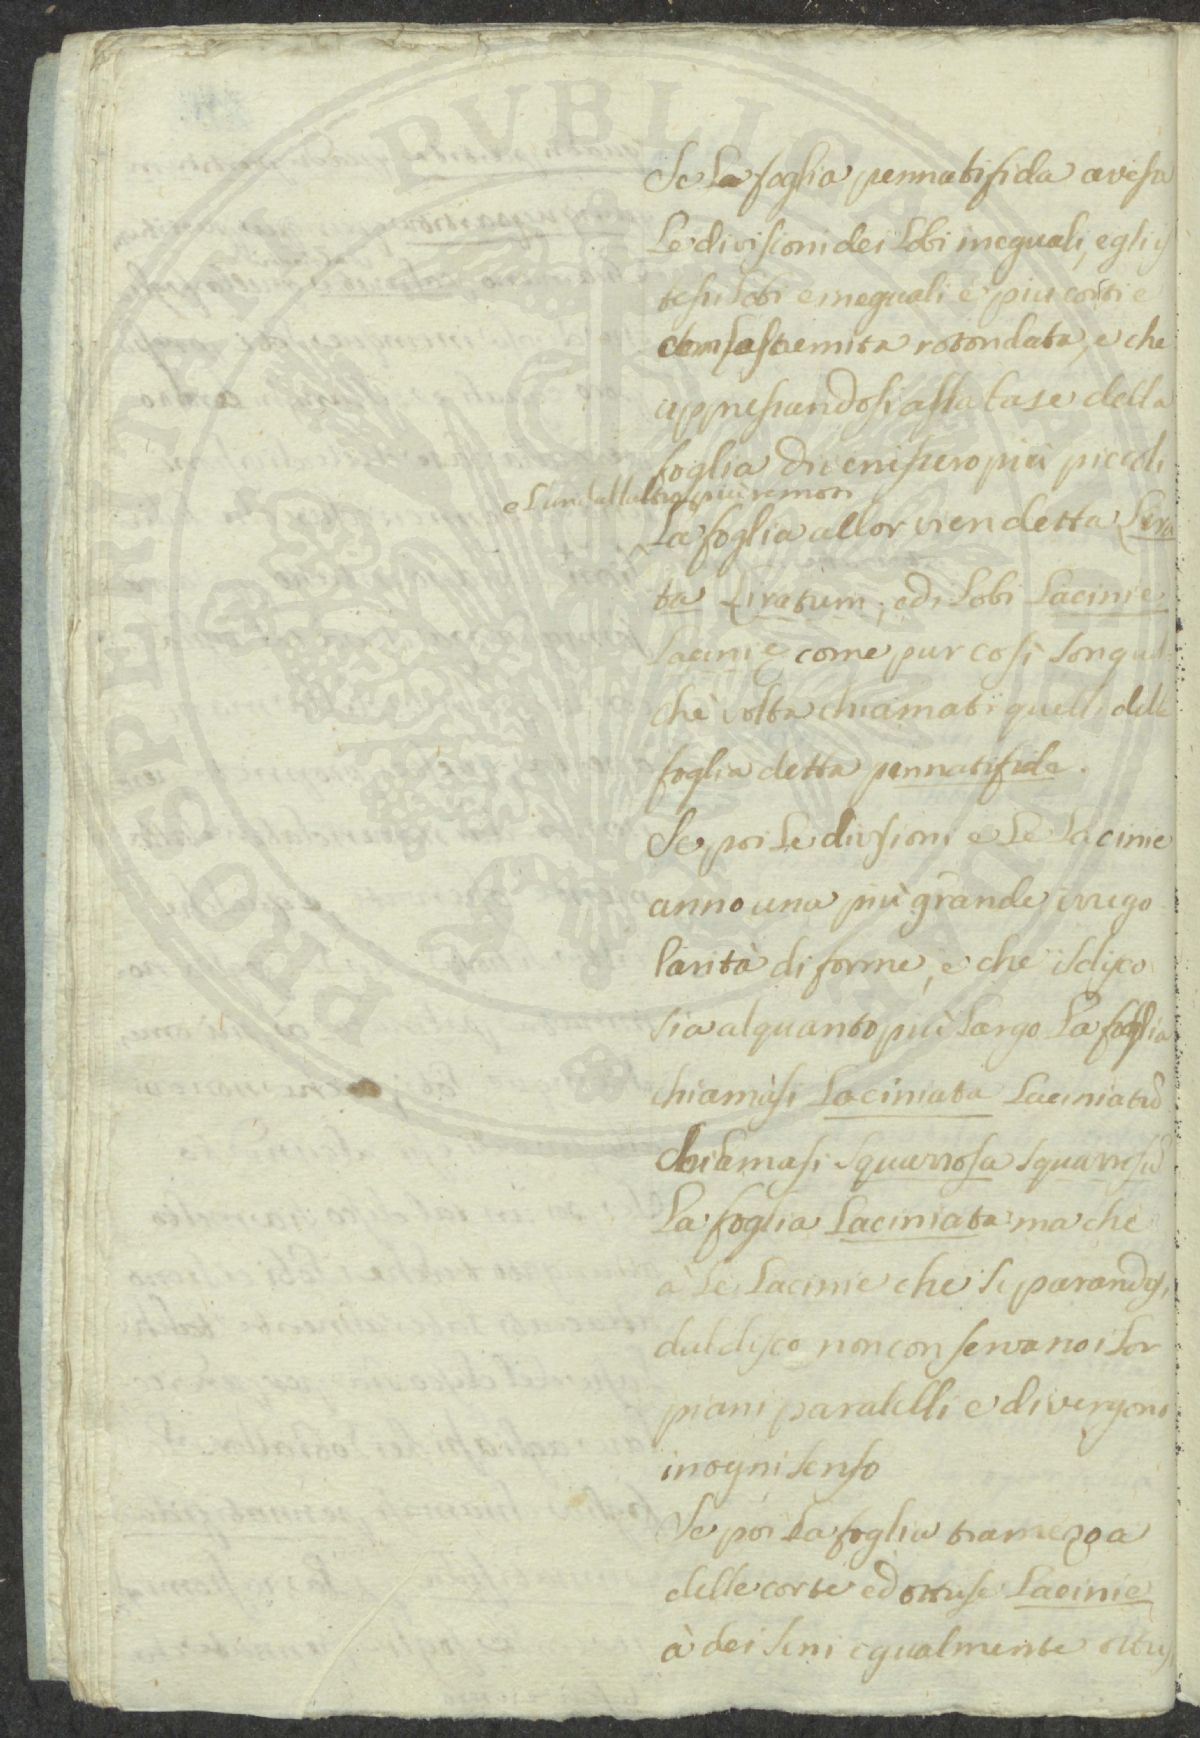 Se la foglia pennatifida avesse
le divisioni dei lobi ineguali, egli is
tesi lobi e ineguali e più corti e
coll'estremita rotondata, e che
appressandosi alla base della
foglia divenissero più piccoli
e l'un dall'altro più remoti
La foglia allor vien detta Lira
ta Liratum, ed i lobi Lacinie
Lacinie come pur così son qual
chè volta chiamati quelli delle
foglia detta pennatifide.
Se poi le divisioni e le lacinie
anno una più grande irrego
larità di forme, e che il disco
sia alquanto più largo La foglia
chiamasi Laciniata Laciniatũ
chiamasi squarrosa squarrosũ
La foglia Laciniata ma che
à le Lacinie che separandosi
dal disco non conservano i lor
piani paralelli e divergono
in ogni senso
Se poi la foglia tramezza
delle corte ed ottuse Lacinie
à dei seni egualmente ottusi